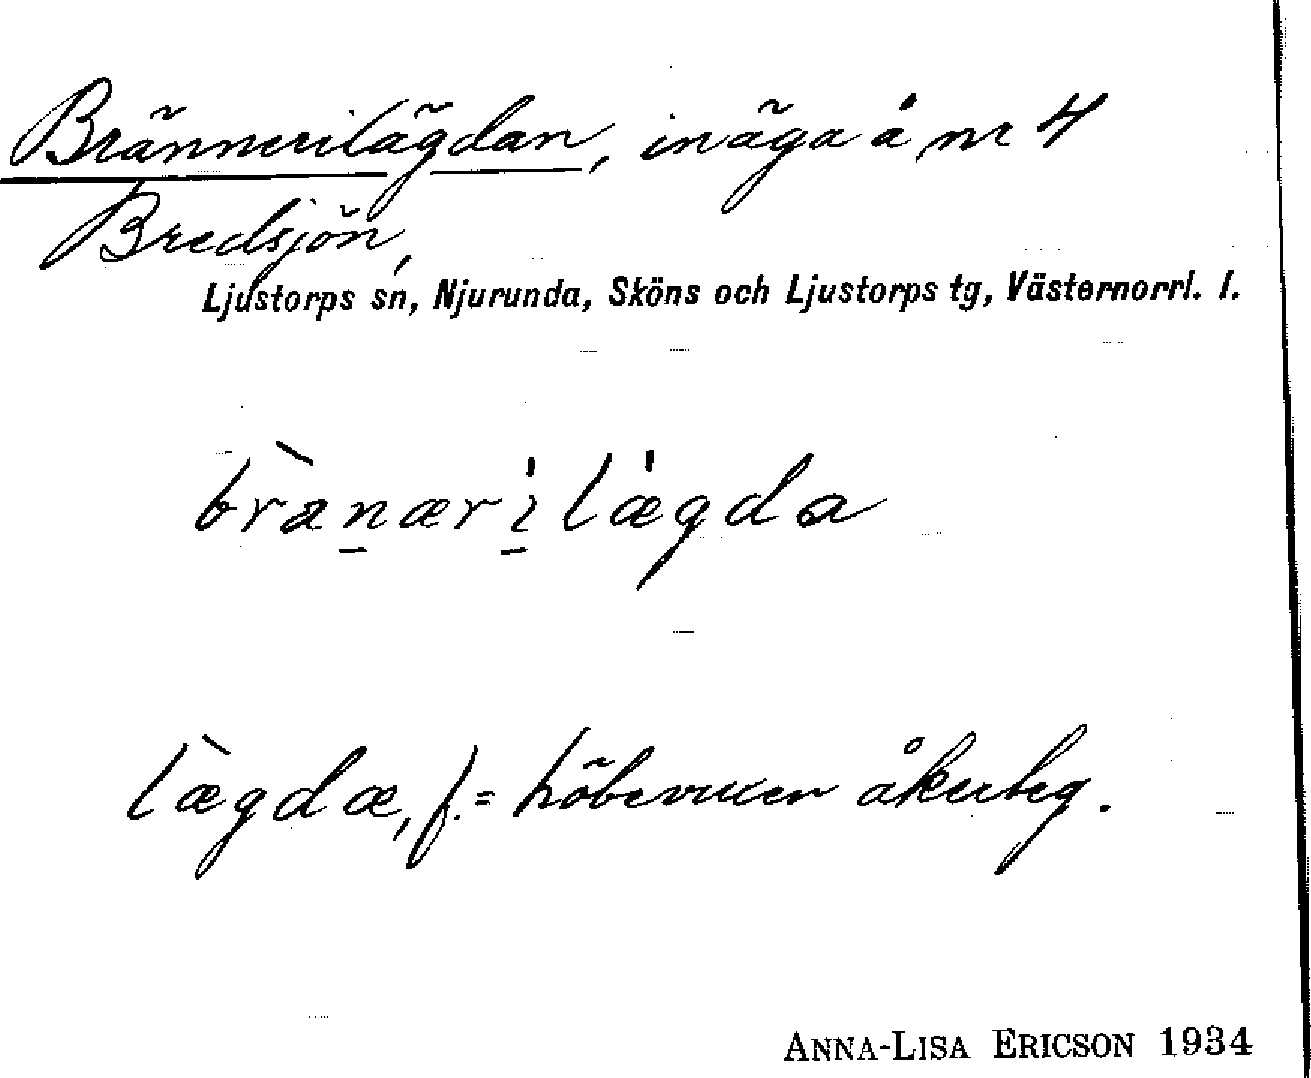 Brännerilägdan, inäga å nr 4
Bredsjön,
Ljustorps sn, Njurunda, Sköns och Ljustorps tg, Västernorrl. l.
brànæri lægda
lægdæ, f. = höbevuxen åkerteg.
ANNA-LISA ERICSON 1934